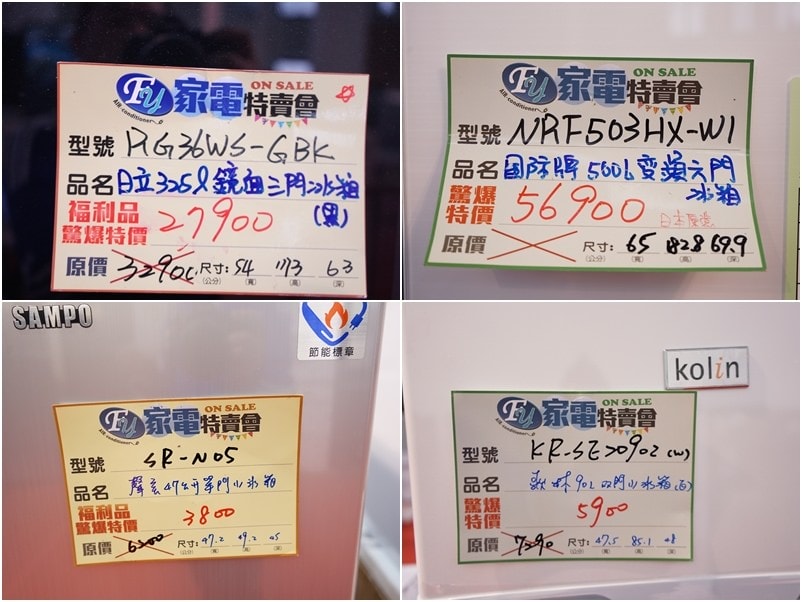 Fy 家電特賣會
ON SALE
AIR-conditioner
型號 RG36WS-GBK
品名 日立325l鏡面三門冰箱
(黑)
福利品
驚爆特價 27900
原價 32900 尺寸: 54 173 63
(公分) (寬) (高) (深)
Fy 家電特賣會
ON SALE
AIR-conditioner
型號 NRF503HX-W1
品名 國際牌500L變頻六門
冰箱
驚爆
特價 56900
原價 尺寸: 65 182.8 69.9
(公分) (寬) (高) (深)
SAMPO
節能標章
Fy 家電特賣會
ON SALE
AIR-conditioner
型號 SR-N05
品名 聲寶47公升單門小冰箱
福利品
驚爆特價 3800
原價 6300 尺寸: 47.2 49.2 45
(公分) (寬) (高) (深)
kolin
Fy 家電特賣會
ON SALE
AIR-conditioner
型號 KR-SE20902 (W)
品名 歌林90L双門小冰箱(白)
驚爆
特價 5900
原價 7290 尺寸: 47.5 85.1 48
(公分) (寬) (高) (深)